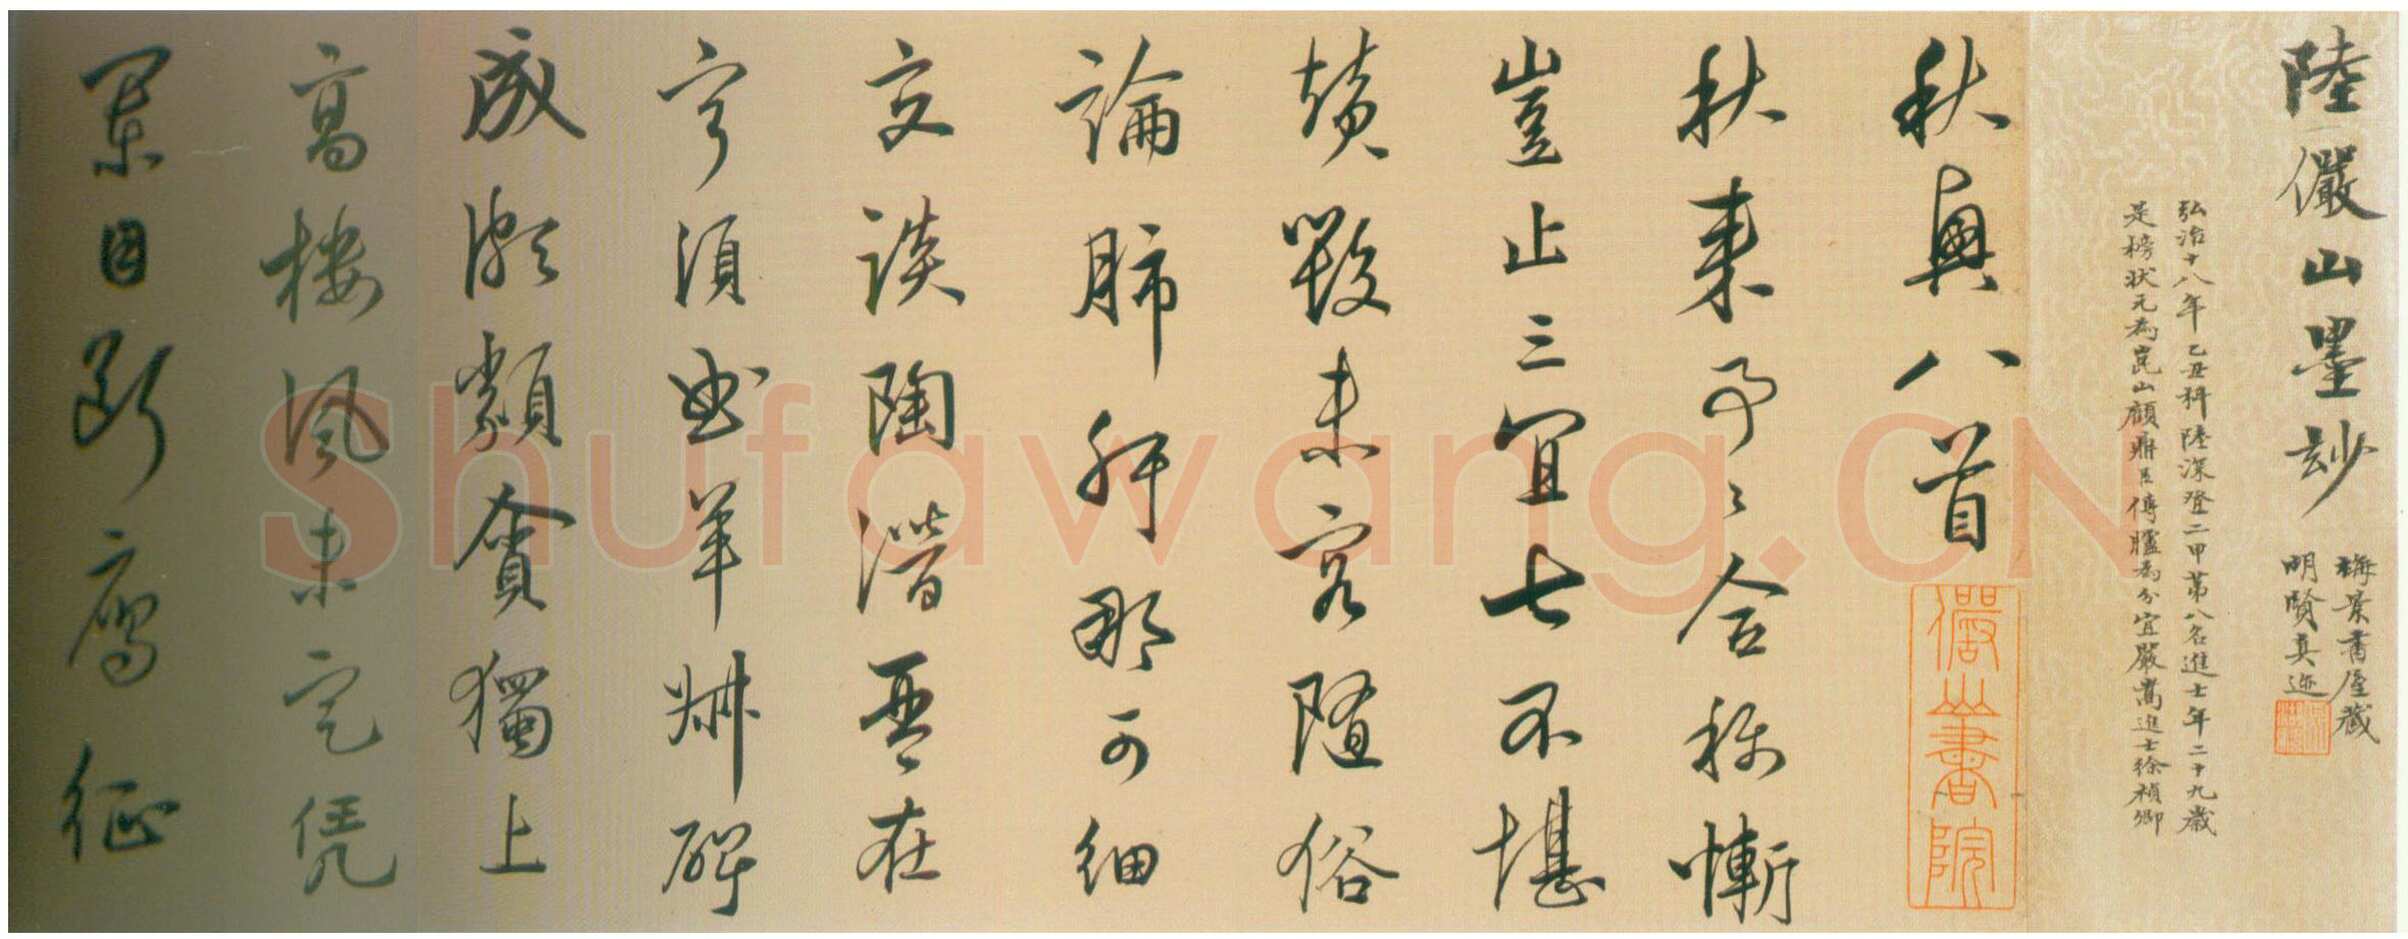 陸儼山墨妙
梅景書屋藏
明賢真迹
弘治十八年乙丑科陸深登二甲第八名進士年二十九歲
是榜狀元為崑山顧鼎臣傳臚為分宜嚴嵩進士徐禎卿
秋興八首
儼山書院
秋來事〻合稱慚
豈止三宜七不堪
鬢未容隨俗
論肺肝那可細
交談陶潛吾在
寧須曲羊
成淵類賓獨上
高樓風未定凭
闌目斷鴈征
Shufawang.CN